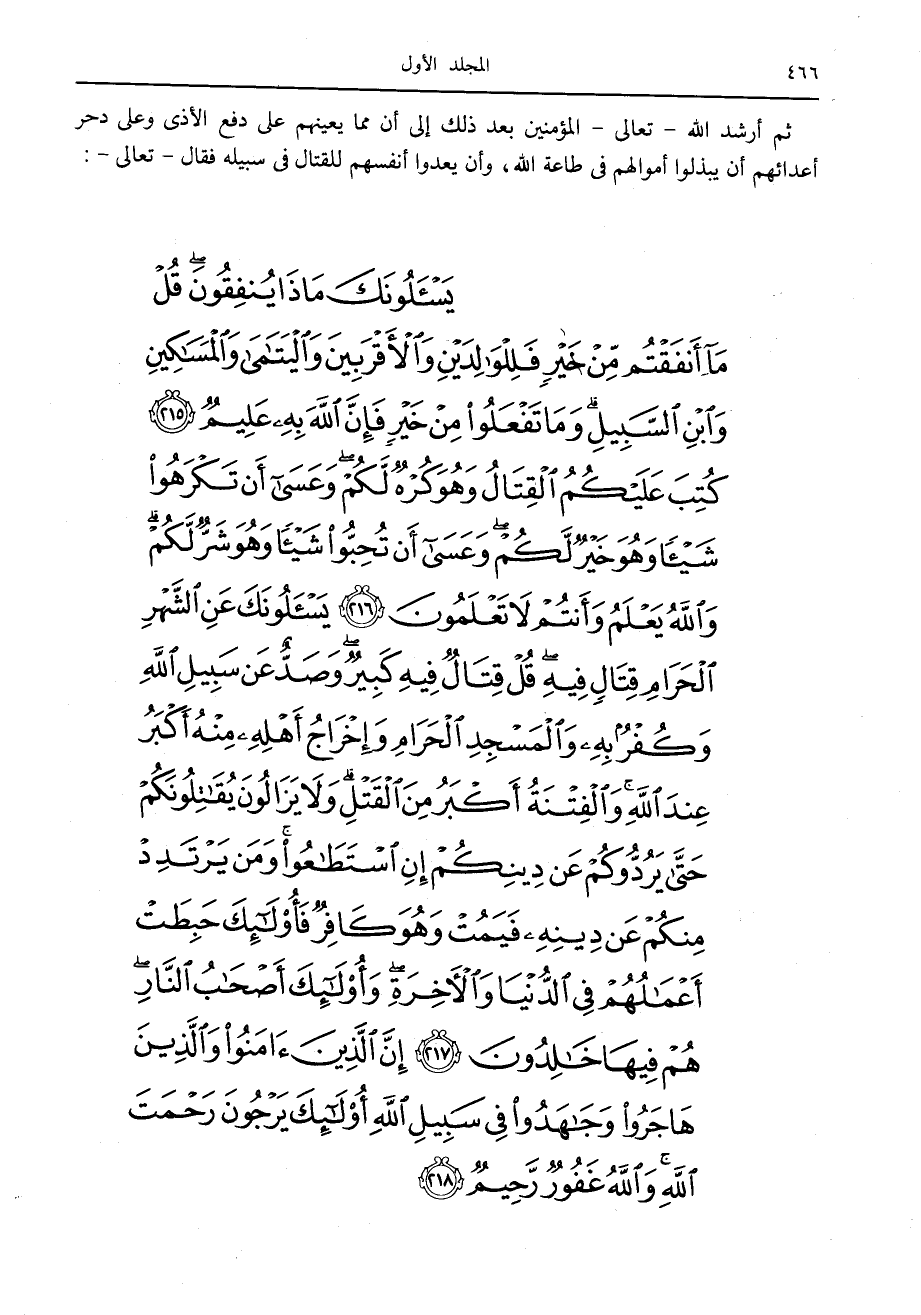 ٤٦٦ المجلد الأول
ثم أرشد الله - تعالى - المؤمنين بعد ذلك إلى أن مما يعينهم على دفع الأذى وعلى دحر
أعدائهم أن يبذلوا أموالهم فى طاعة الله، وأن يعدوا أنفسهم للقتال فى سبيله فقال - تعالى - :
يَسْـَٔلُونَكَ مَاذَا يُنفِقُونَۖ قُلْ
مَآ أَنفَقْتُم مِّنْ خَيْرٍ فَلِلْوَٰلِدَيْنِ وَٱلْأَقْرَبِينَ وَٱلْيَتَٰمَىٰ وَٱلْمَسَٰكِينِ
وَٱبْنِ ٱلسَّبِيلِۗ وَمَا تَفْعَلُوا۟ مِنْ خَيْرٍ فَإِنَّ ٱللَّهَ بِهِۦ عَلِيمٌ ٢١٥
كُتِبَ عَلَيْكُمُ ٱلْقِتَالُ وَهُوَ كُرْهٌ لَّكُمْۖ وَعَسَىٰٓ أَن تَكْرَهُوا۟
شَيْـًٔا وَهُوَ خَيْرٌ لَّكُمْۖ وَعَسَىٰٓ أَن تُحِبُّوا۟ شَيْـًٔا وَهُوَ شَرٌّ لَّكُمْۗ
وَٱللَّهُ يَعْلَمُ وَأَنتُمْ لَا تَعْلَمُونَ ٢١٦ يَسْـَٔلُونَكَ عَنِ ٱلشَّهْرِ
ٱلْحَرَامِ قِتَالٍ فِيهِۖ قُلْ قِتَالٌ فِيهِ كَبِيرٌۖ وَصَدٌّ عَن سَبِيلِ ٱللَّهِ
وَكُفْرٌۢ بِهِۦ وَٱلْمَسْجِدِ ٱلْحَرَامِ وَإِخْرَاجُ أَهْلِهِۦ مِنْهُ أَكْبَرُ
عِندَ ٱللَّهِۚ وَٱلْفِتْنَةُ أَكْبَرُ مِنَ ٱلْقَتْلِۗ وَلَا يَزَالُونَ يُقَٰتِلُونَكُمْ
حَتَّىٰ يَرُدُّوكُمْ عَن دِينِكُمْ إِنِ ٱسْتَطَٰعُوا۟ۚ وَمَن يَرْتَدِدْ
مِنكُمْ عَن دِينِهِۦ فَيَمُتْ وَهُوَ كَافِرٌ فَأُو۟لَٰٓئِكَ حَبِطَتْ
أَعْمَٰلُهُمْ فِى ٱلدُّنْيَا وَٱلْـَٔاخِرَةِۖ وَأُو۟لَٰٓئِكَ أَصْحَٰبُ ٱلنَّارِۖ
هُمْ فِيهَا خَٰلِدُونَ ٢١٧ إِنَّ ٱلَّذِينَ ءَامَنُوا۟ وَٱلَّذِينَ
هَاجَرُوا۟ وَجَٰهَدُوا۟ فِى سَبِيلِ ٱللَّهِ أُو۟لَٰٓئِكَ يَرْجُونَ رَحْمَتَ
ٱللَّهِۚ وَٱللَّهُ غَفُورٌ رَّحِيمٌ ٢١٨